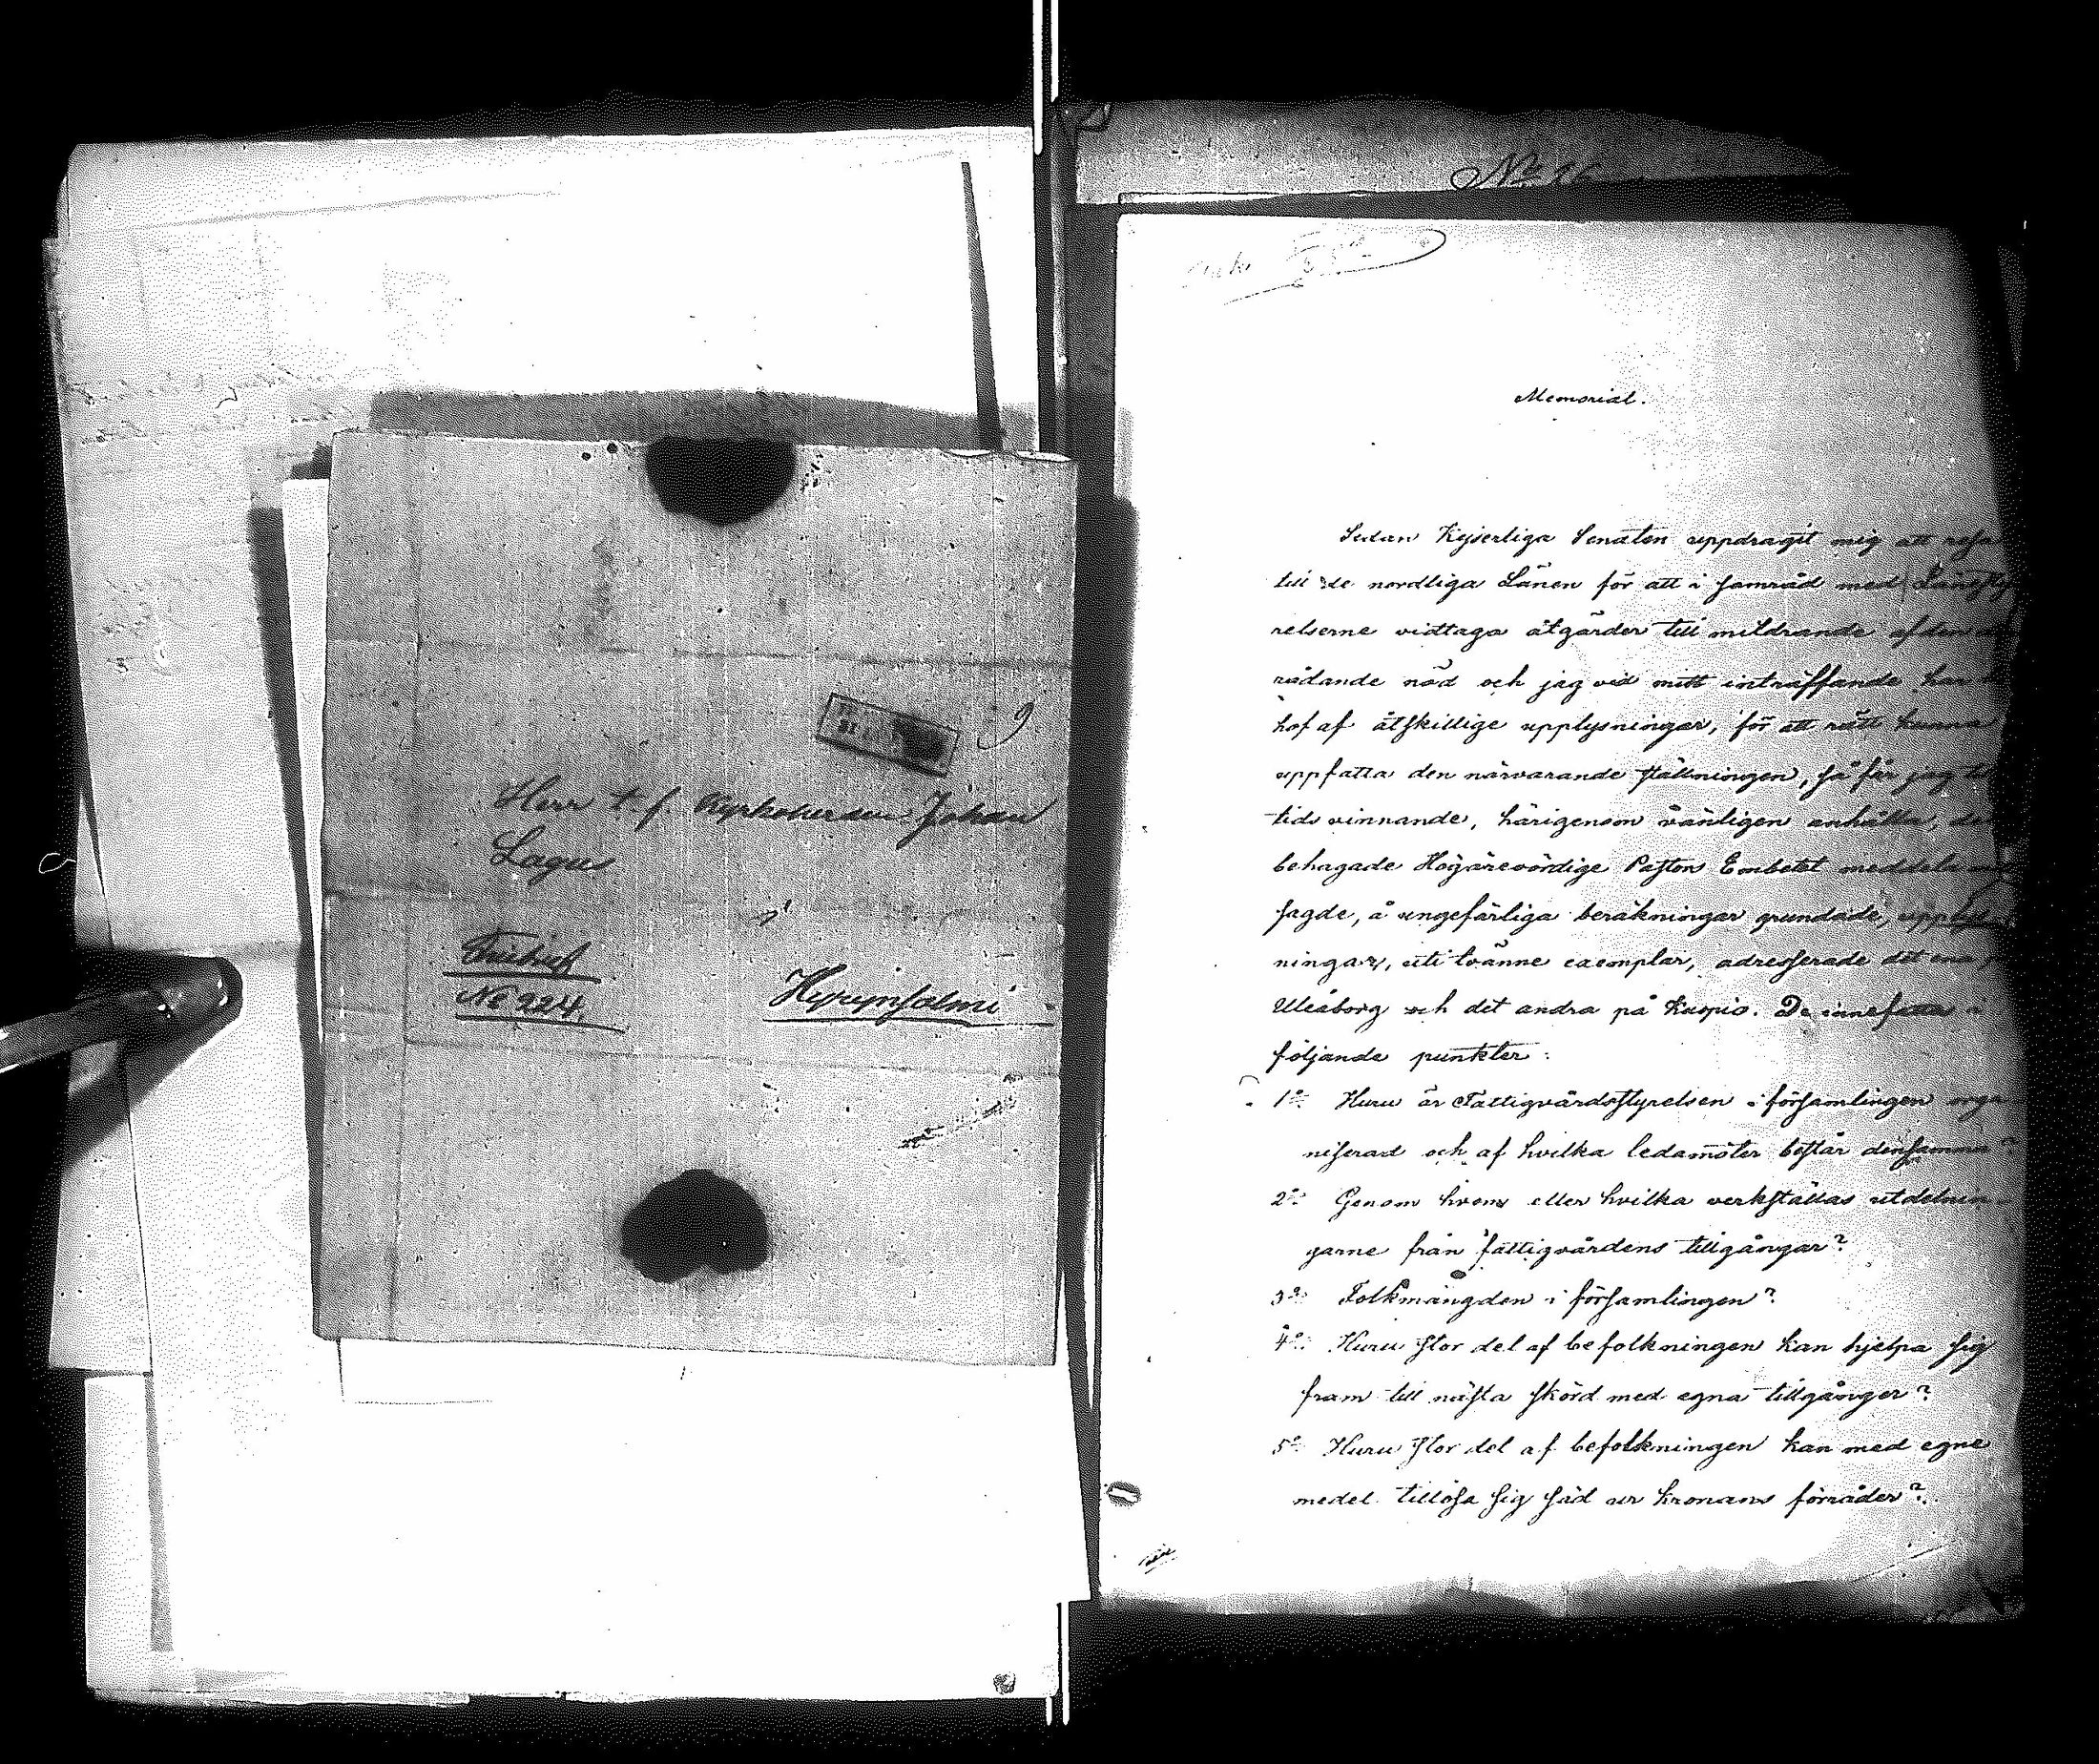 Herr t. f. Kyrkoherden Johan
Lagus
Fribref
No 224.
Hyrynsalmi
9
No 26
Memorial.
Sedan Kejserliga Senaten uppdragit mig att resa
till de nordliga Länen för att i samråd med Länssty
relserne vidtaga åtgärder till mildrande af den
rådande nöd och jag vid mitt inträffande har
hof af åtskillige upplysningar, för att rätt kunna
uppfatta den närvarande ställningen, så får jag
tidsvinnande, härigenom vänligen anhålla, det
behagade Högärevördige Pastors Embetet meddela
sagde, å ungefärliga beräkningar grundade, upplys
ningar, uti tvänne exemplar, adresserade det ena
Uleåborg och det andra på Kuopio. De innefatta i
följande punkter:
1o: Huru är Fattigvårdsstyrelsen i församlingen orga
niserad och af hvilka ledamöter består densamma?
2o: Genom hvem eller hvilka verkställas utdelnin-
garne från fattigvårdens tillgångar?
3o: Folkmängden i församlingen?
4o: Huru stor del af befolkningen kan hjelpa sig
fram till nästa skörd med egna tillgånger?
5o: Huru stor del af befolkningen kan med egne
medel tillösa sig säd ur kronans förråder?